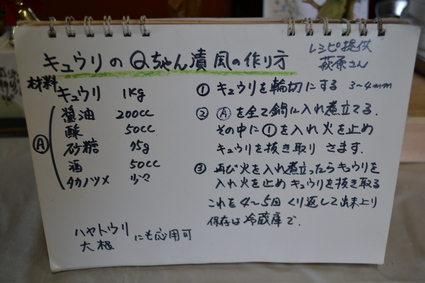 キュウリのQちゃん漬風の作り方
レシピ提供
萩原さん
材料
キュウリ 1kg
Ⓐ
醤油 200cc
酢 50cc
砂糖 95g
酒 50cc
タカノツメ 少々
ハヤトウリ
大根 にも応用可
① キュウリを輪切にする 3~4mm
② Ⓐを全て鍋に入れ煮立てる.
その中に①を入れ火を止め
キュウリを抜き取り さます.
③ 再び火を入れ煮立ったらキュウリを
入れ火を止め キュウリを抜き取る
これを4~5回くり返して出来上り
保存は冷蔵庫で.